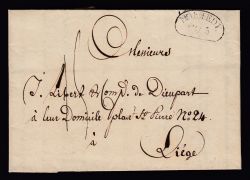 Messieurs
J. Libert & Comp. de Dieupart
à leur Domicile place St. Pierre No. 24
à
Liège